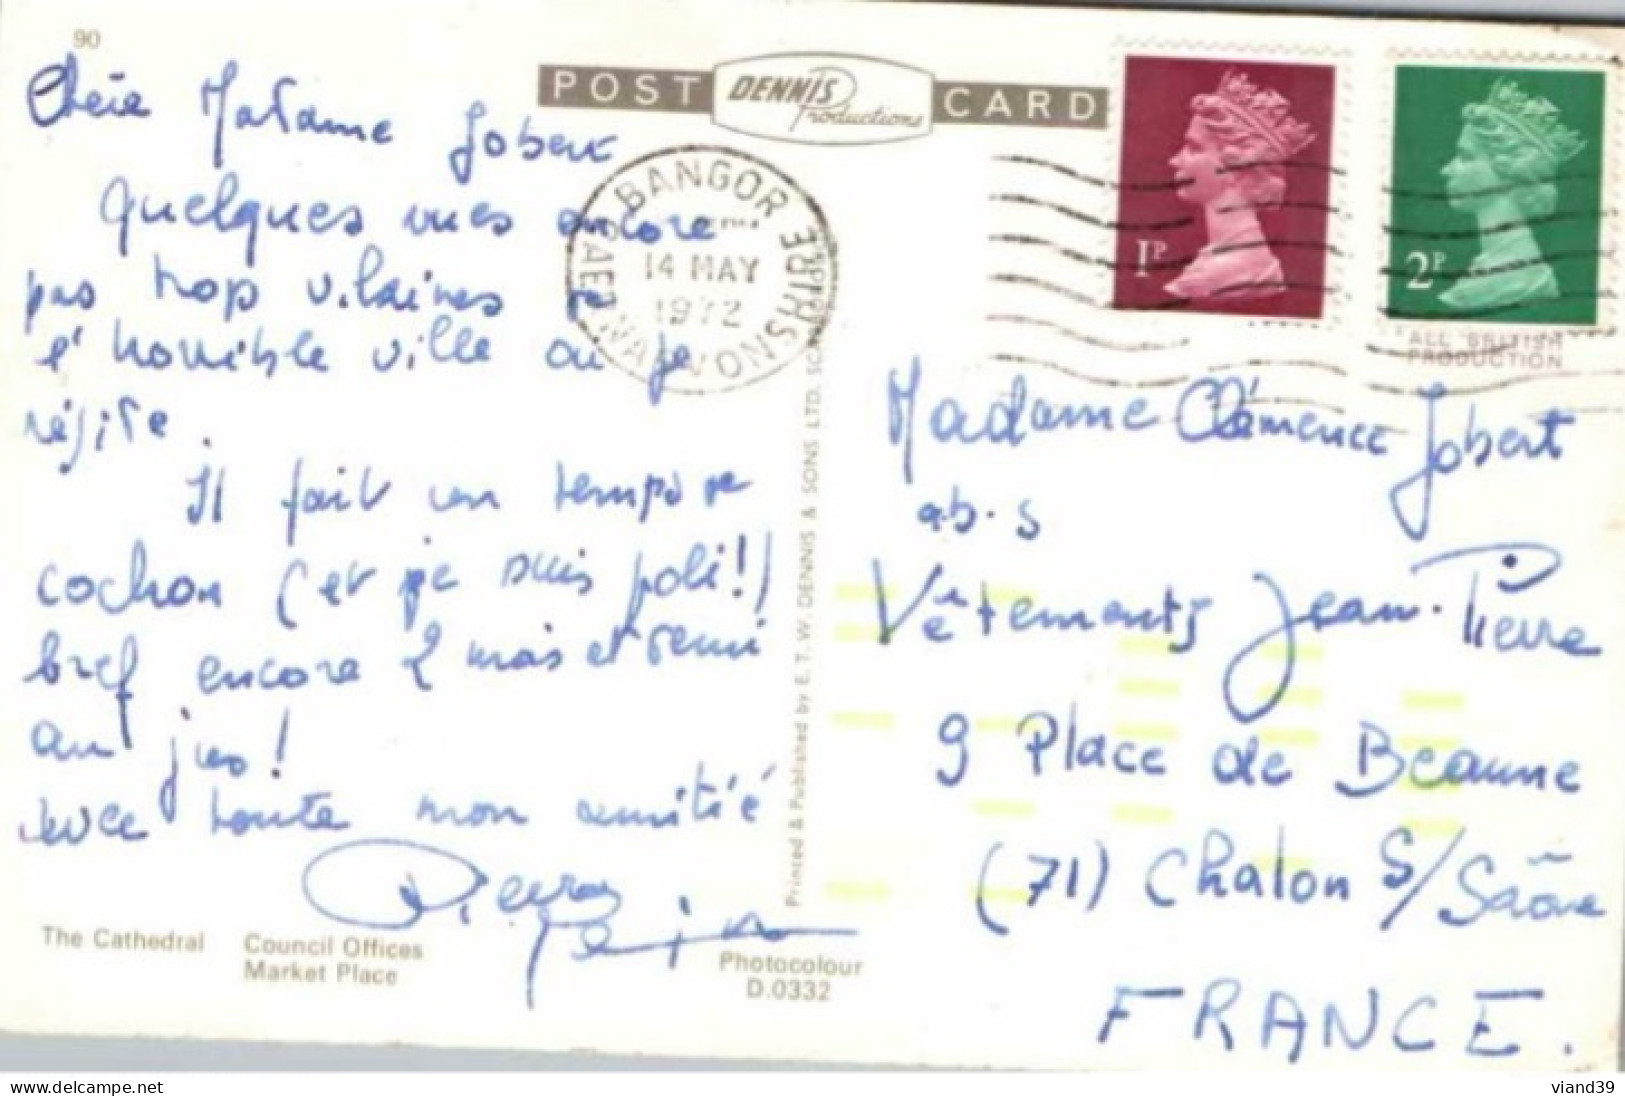 90
POST DENNIS Productions CARD
Chère Madame Jobert
Quelques vues encore
pas trop vilaines de
l'horrible ville où je
réside.
Il fait un temps de
cochon (et je suis poli!)
bref encore 2 mois et demi
au jus!
avec toute mon amitié
Pierre
BANGOR
14 MAY
1972
CAERNARVONSHIRE
1P
2P
ALL BRITISH
PRODUCTION
Printed & Published by E. T. W. DENNIS & SONS LTD.
Madame Clémence Jobert
a.b.s
Vêtements Jean-Pierre
9 Place de Beaune
(71) Chalon S/Saône
FRANCE.
The Cathedral
Council Offices
Market Place
Photocolour
D.0332
www.delcampe.net
viand39